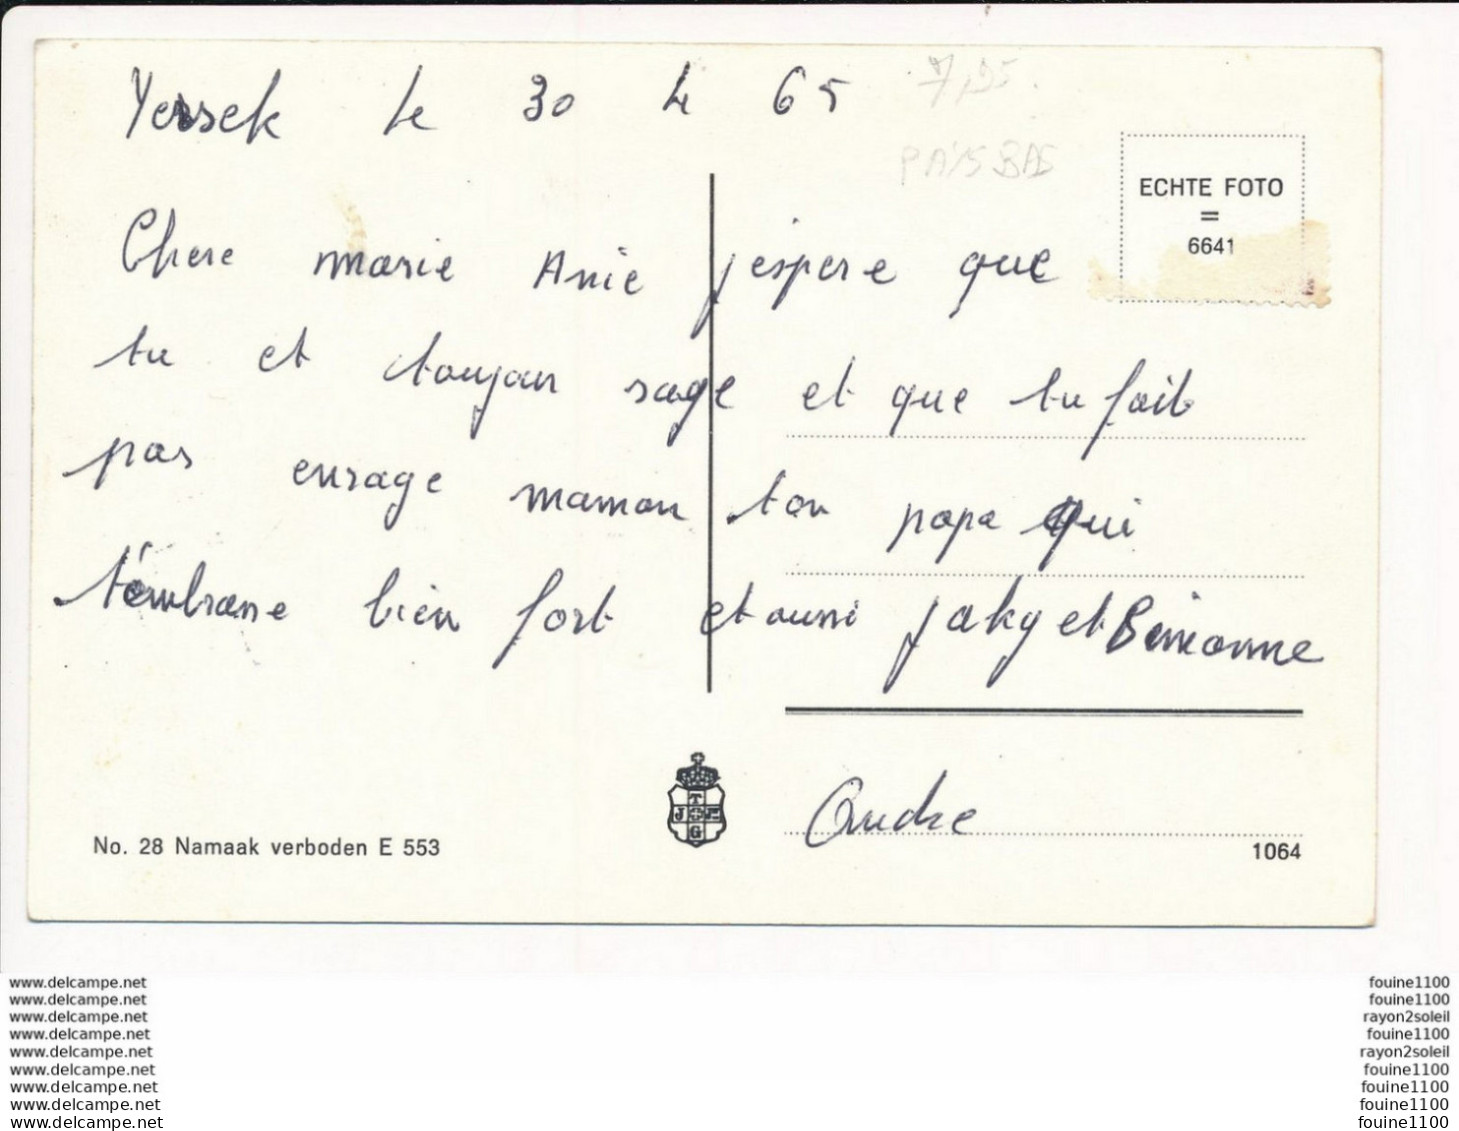 Yersek le 30 4 65
7,95
PAYS BAS
ECHTE FOTO
=
6641
Chere marie Anie j'espere que
tu et toujour sage et que tu fait
pas enrage maman ton papa qui
t'embrase bien fort et aussi jaky et
Andre
No. 28 Namaak verboden E 553
T
J J
G
1064
www.delcampe.net fouine1100
www.delcampe.net fouine1100
www.delcampe.net rayon2soleil
www.delcampe.net fouine1100
www.delcampe.net rayon2soleil
www.delcampe.net fouine1100
www.delcampe.net fouine1100
www.delcampe.net fouine1100
www.delcampe.net fouine1100